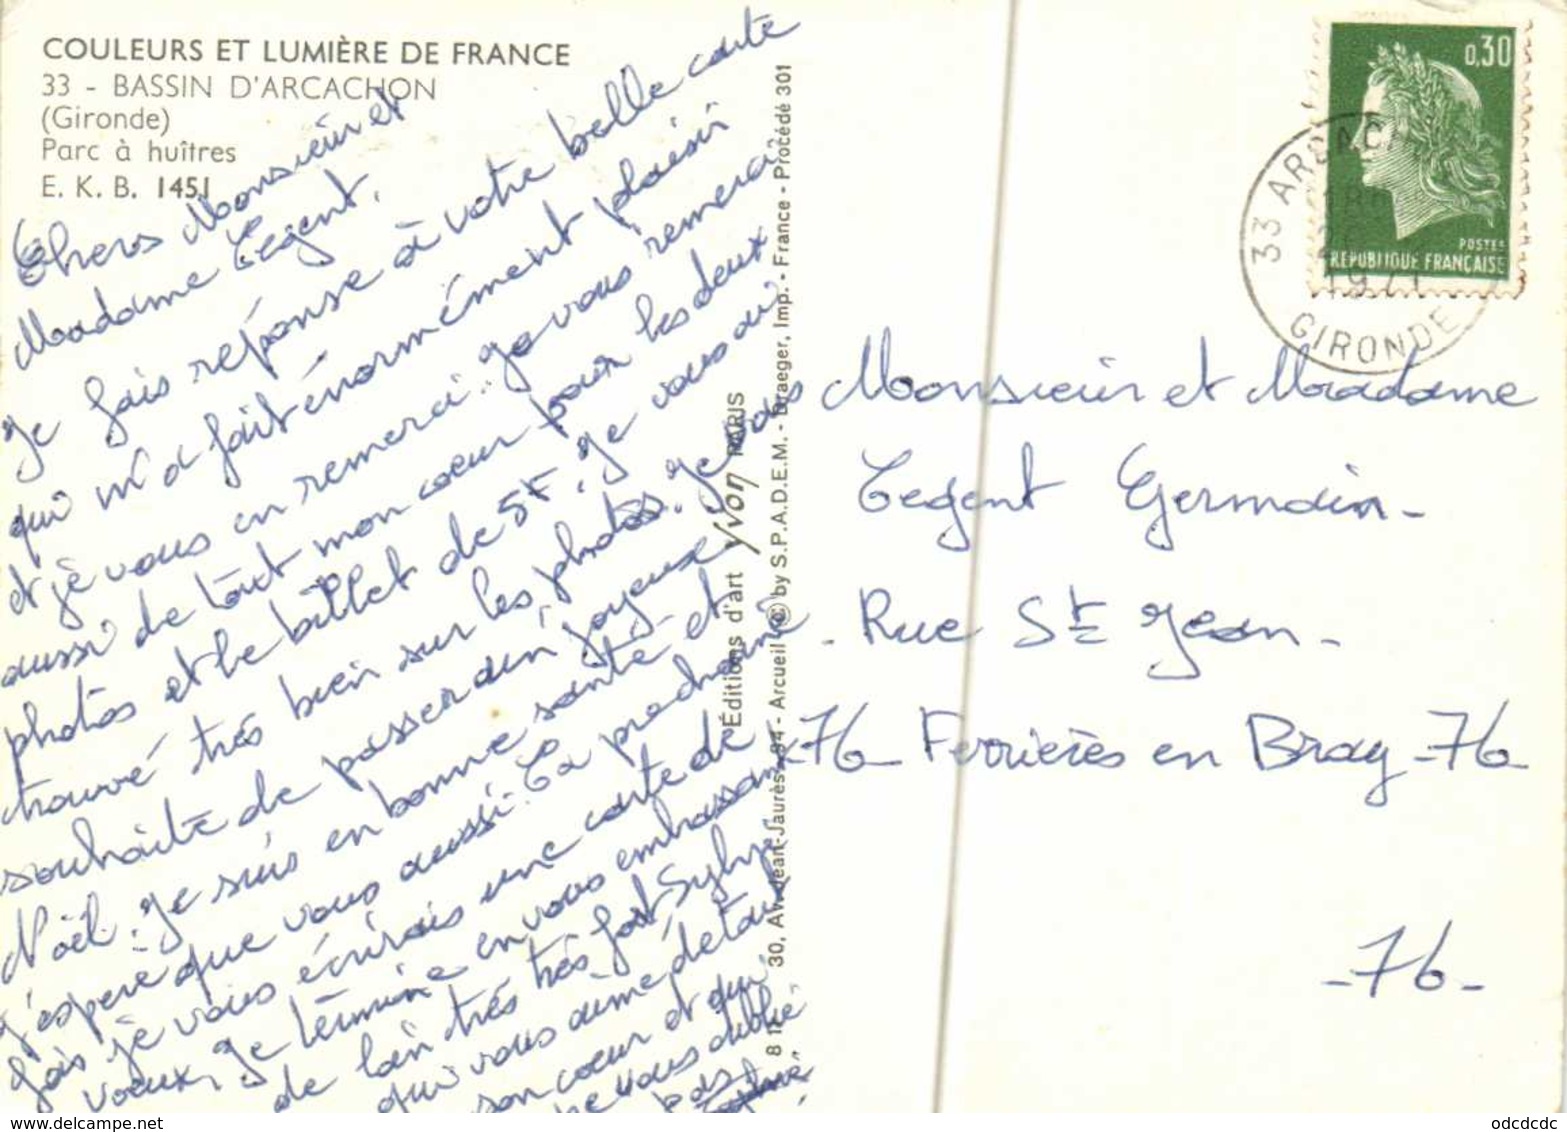 COULEURS ET LUMIÈRE DE FRANCE
33 - BASSIN D'ARCACHON
(Gironde)
Parc à huîtres
E. K. B. 1451
Chers Monsieur et
Madame Tegent.
Je fais réponse à votre belle carte
qui m'a fait énormément plaisir
et je vous en remerci. Je vous remerci
aussi de tout mon coeur pour les deux
photos et le billet de 5F, Je vous ai
trouvé très bien sur les photos. Je vous
souhaite de passer un joyeux
Noël. Je suis en bonne santé et
j'espère que vous aussi. La prochaine
fois je vous écrirais une carte de
voeux, Je termine en vous embrassant
de loin très très fort, Sylvie
qui vous aime de tout
son coeur et qui
ne vous oublié
pas
Éditions d'art yvon PARIS
8 17 30, Av. Jean-Jaurès - 94 - Arcueil © by S.P.A.D.E.M. - Braeger, Imp. - France - Procédé 301
0,30
POSTES
REPUBLIQUE FRANÇAISE
33 ARCAC
GIRONDE
Monsieur et Madame
Tegent Germain -
- Rue St Jean -
76 Ferrières en Bray - 76
- 76 -
odcdcdc